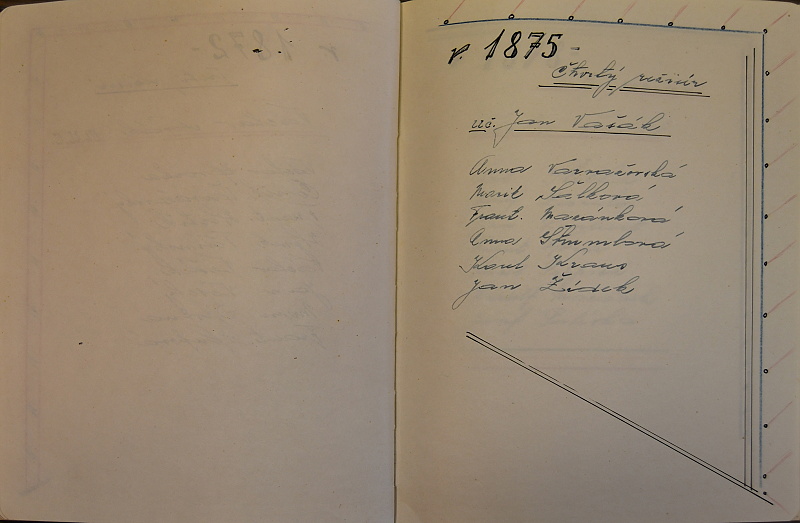 r. 1875 -
Čtvrtý ročník
uč. Jan Vašák
Anna
Marie Šálková
Frant. Maránková
Anna
Karel Kraus
Jan Žídek